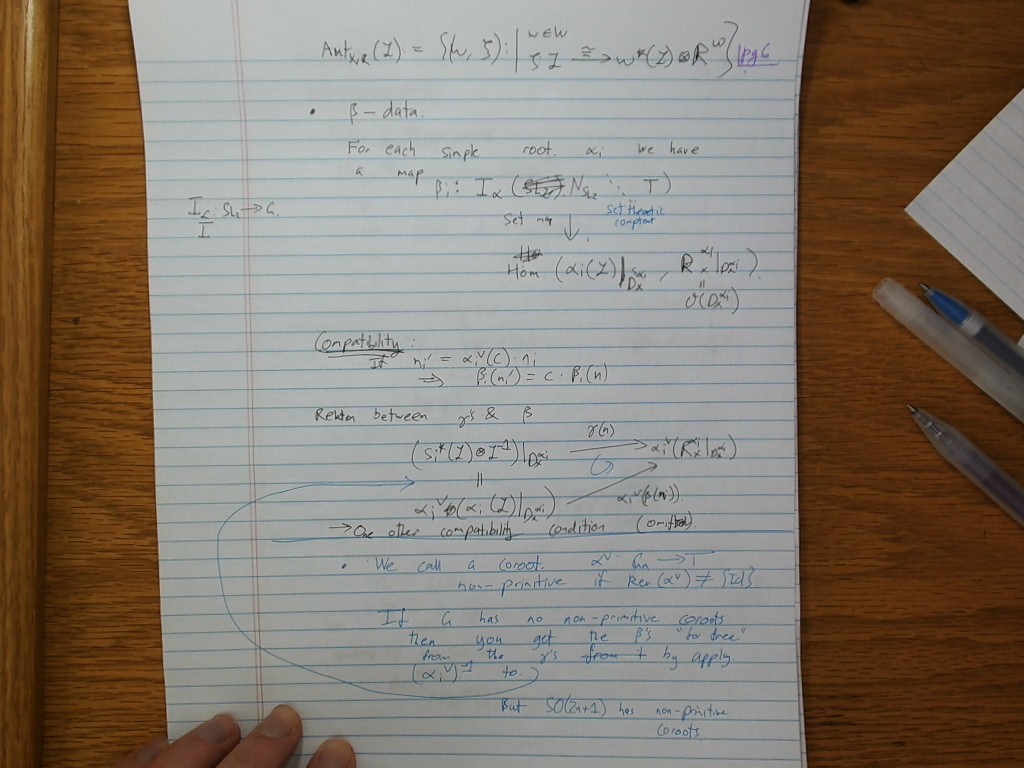 Aut_{X,R}(L) = {(w, ξ) : | w ∈ W
ξ L ≅→ w*(L) ⊗ R^w} |pg 6
• β - data.
For each simple root α_i we have
a map
β_i : I_α ( N_{SL_2} \ T)
I_α : SL_2 → G.
I
Set map ↓
Set theoretic
complement
Hom (α_i(L)|_{D_x^{α_i}}, R_x^{α_i}|_{D_x^{α_i}})
||
O(D_x^{α_i})
Compatibility:
If n_i' = α_i^∨(c) · n_i
⇒ β_i(n_i') = c · β_i(n)
Relation between γ's & β
(s_i*(L) ⊗ L^{-1})|_{D_x^{α_i}} γ(n)→ α_i^∨(R_x^{α_i}|_{D_x^{α_i}})
||
α_i^∨(α_i(L)|_{D_x^{α_i}}) α_i^∨(β(n_i))
→ One other compatibility condition (omitted)
• We call a coroot α^∨: G_m → T
non-primitive if Ker(α^∨) ≠ {Id}
If G has no non-primitive coroots
then you get the β's "for free"
from the γ's from t by apply
(α_i^∨)^{-1} to
But SO(2n+1) has non-primitive
coroots